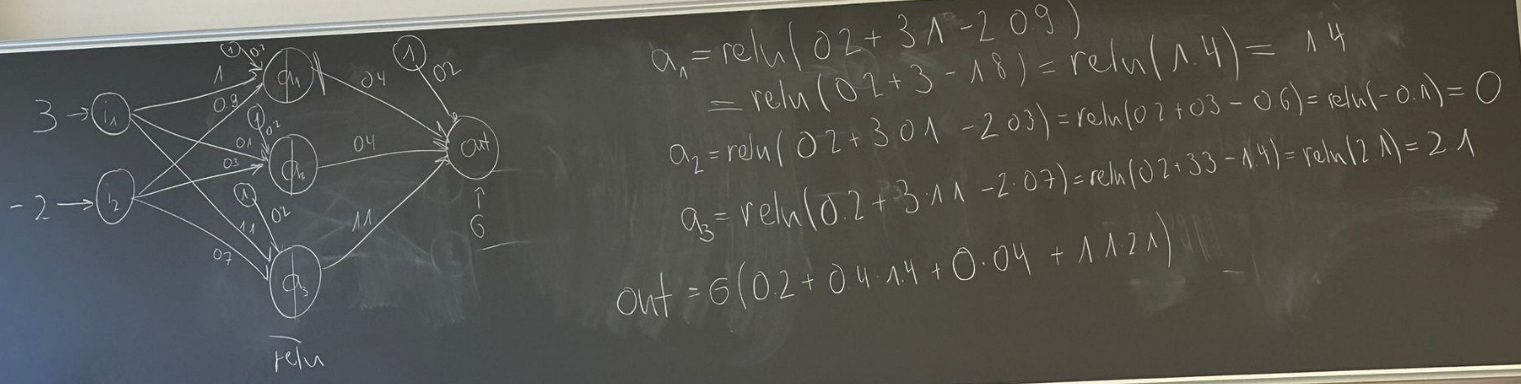 3 → i₁
-2 → i₂
1
0.9
0.1
03
11
07
1
02
a₁
1
02
a₂
1
02
a₃
relu
04
04
11
1
02
out
↑
σ
a₁ = relu(02 + 3·1 - 2·09)
= relu(02 + 3 - 18) = relu(1.4) = 14
a₂ = relu(02 + 3·01 - 2·03) = relu(02 + 03 - 0.6) = relu(-0.1) = 0
a₃ = relu(0.2 + 3·11 - 2·07) = relu(02 + 33 - 14) = relu(2.1) = 21
out = σ(0.2 + 04·1.4 + 0·04 + 11·21)